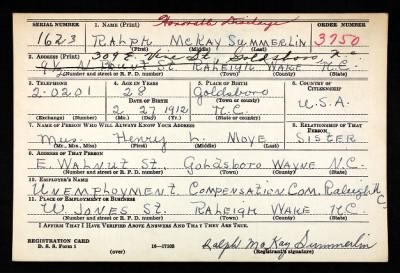 Honorable Discharge
SERIAL NUMBER 1. NAME (Print) ORDER NUMBER
1623 RALPH McKAY SUMMERLIN 3750
(First) (Middle) (Last)
2. ADDRESS (Print) 309 E. Vine St. Goldsboro, N.C.
N. ST. RALEIGH WAKE N.C.
(Number and street or R. F. D. number) (Town) (County) (State)
3. TELEPHONE 4. AGE IN YEARS 5. PLACE OF BIRTH 6. COUNTRY OF CITIZENSHIP
2-0201 28 Goldsboro
DATE OF BIRTH (Town or county) U.S.A.
2 27 1912 N.C.
(Exchange) (Number) (Mo.) (Day) (Yr.) (State or country)
7. NAME OF PERSON WHO WILL ALWAYS KNOW YOUR ADDRESS 8. RELATIONSHIP OF THAT PERSON
Mrs. Henry L. Moye SISTER
(Mr., Mrs., Miss) (First) (Middle) (Last)
9. ADDRESS OF THAT PERSON
E. WALNUT ST. GOLDSBORO WAYNE N.C.
(Number and street or R. F. D. number) (Town) (County) (State)
10. EMPLOYER'S NAME
UNEMPLOYMENT COMPENSATION COM. Raleigh N.C.
11. PLACE OF EMPLOYMENT OR BUSINESS
W. JONES ST. RALEIGH WAKE N.C.
(Number and street or R. F. D. number) (Town) (County) (State)
I AFFIRM THAT I HAVE VERIFIED ABOVE ANSWERS AND THAT THEY ARE TRUE.
REGISTRATION CARD
D. S. S. Form 1 (over) 16—17105 Ralph McKay Summerlin
(Registrant's signature)